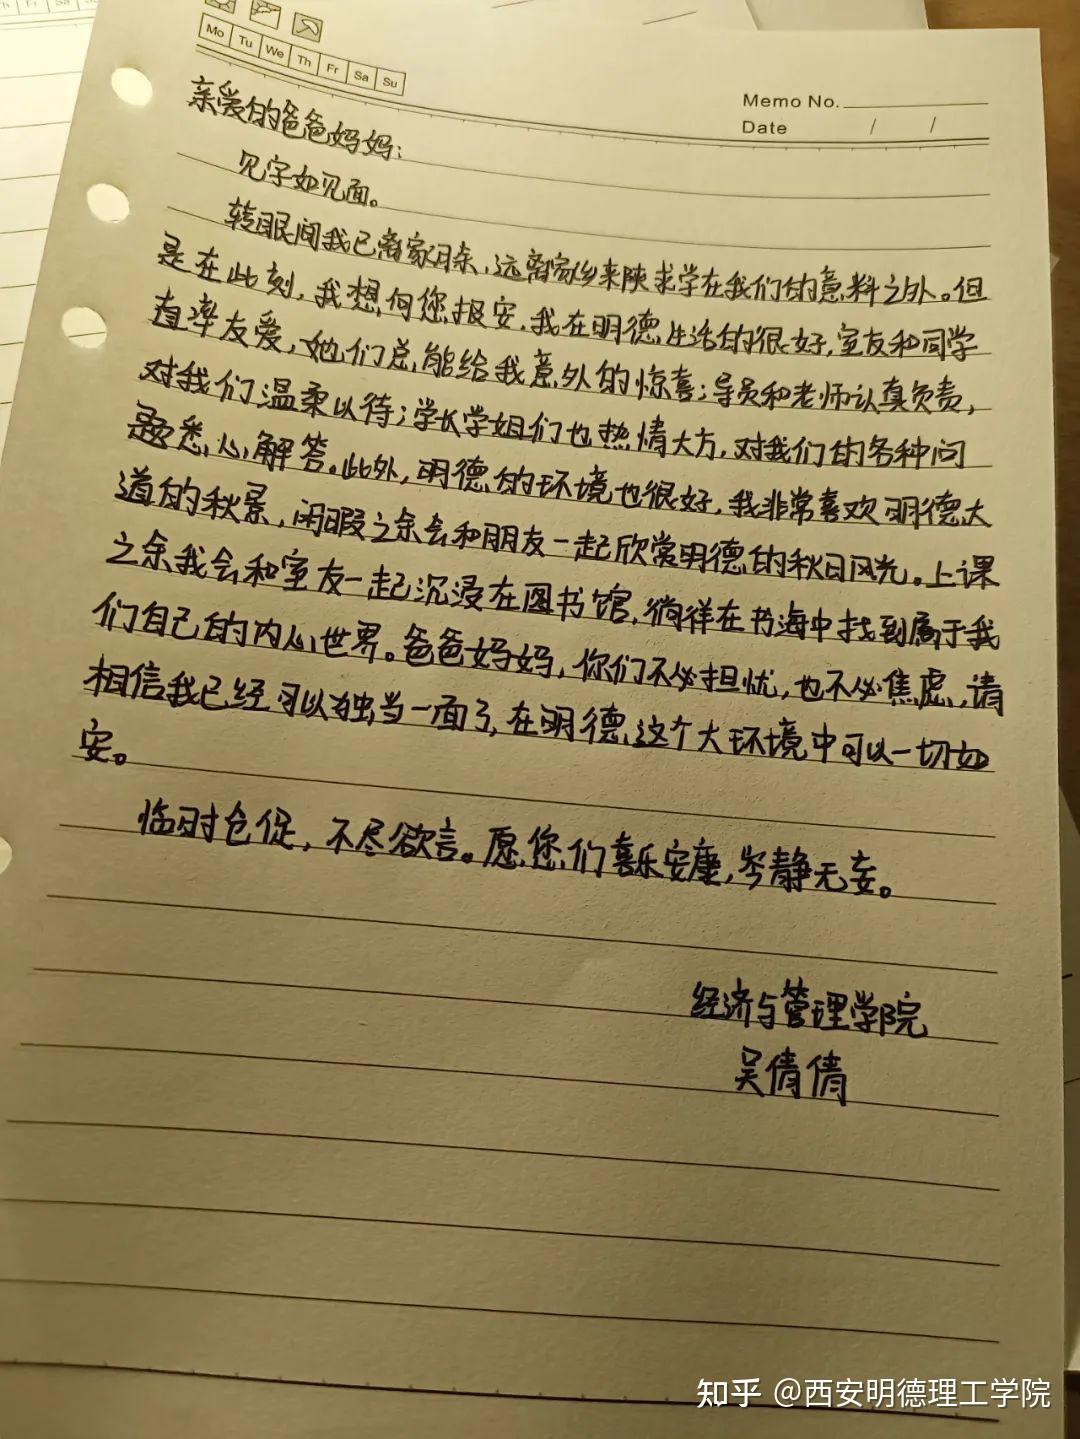 Mo Tu We Th Fr Sa Su
Memo No.
Date / /
亲爱的爸爸妈妈:
见字如见面。
转眼间我已离家月余,远离家乡来陕求学在我们的意料之外。但
是在此刻,我想向您报安,我在明德生活的很好,室友和同学
直率友爱,她们总能给我意外的惊喜;导员和老师认真负责,
对我们温柔以待;学长学姐们也热情大方,对我们的各种问
题悉心解答。此外,明德的环境也很好,我非常喜欢明德大
道的秋景,闲暇之余会和朋友一起欣赏明德的秋日风光。上课
之余我会和室友一起沉浸在图书馆,徜徉在书海中找到属于我
们自己的内心世界。爸爸妈妈,你们不必担忧,也不必焦虑,请
相信我已经可以独当一面了,在明德这个大环境中可以一切如
安。
临时仓促,不尽欲言。愿您们喜乐安康,岑静无妄。
经济与管理学院
吴倩倩
知乎 @西安明德理工学院